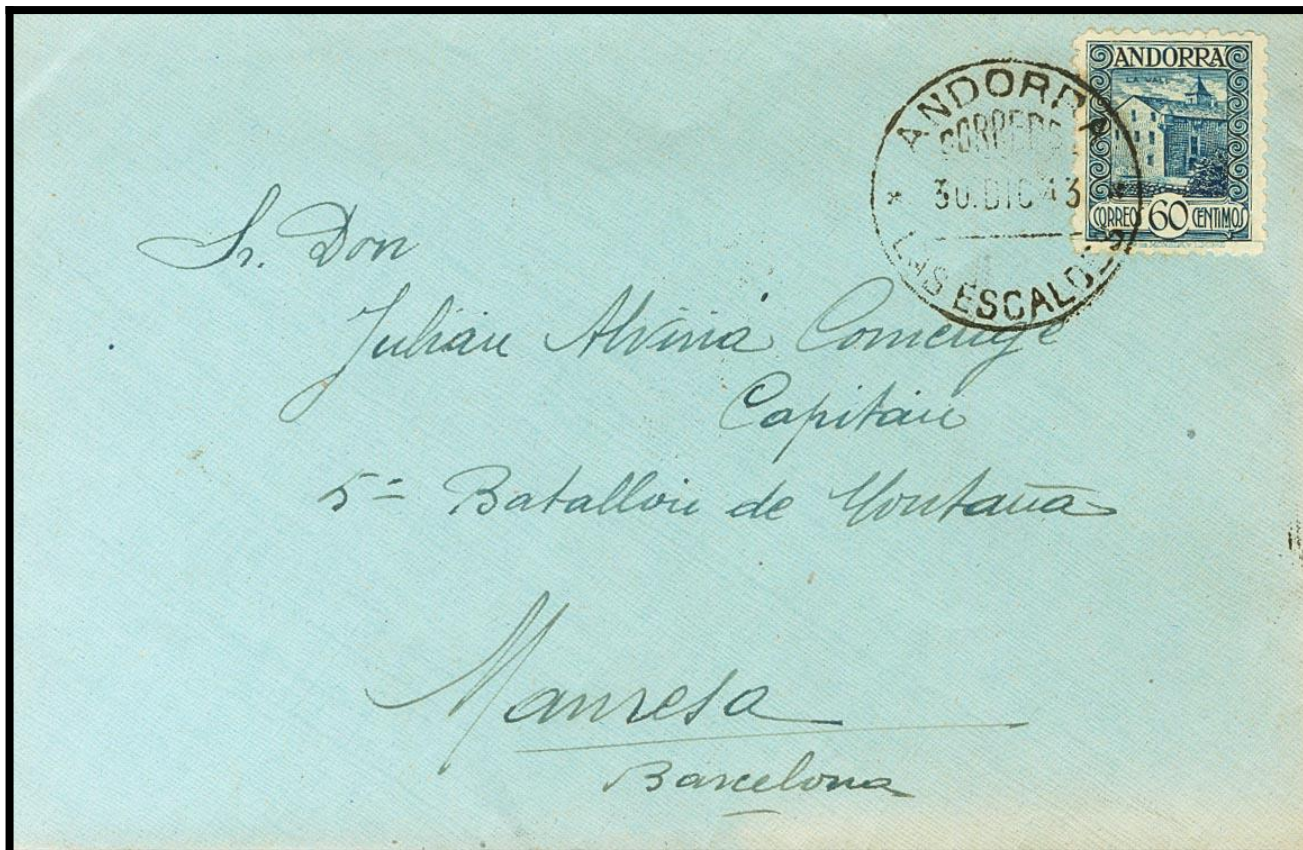 ANDORRA
LA VALL
CORREOS 60 CENTIMOS
ANDORRA
CORREOS
30.DIC 43
LAS ESCALDES
Sr. Don
Julian Alvina Comenge
Capitán
5º Batallón de Montaña
Manresa
Barcelona